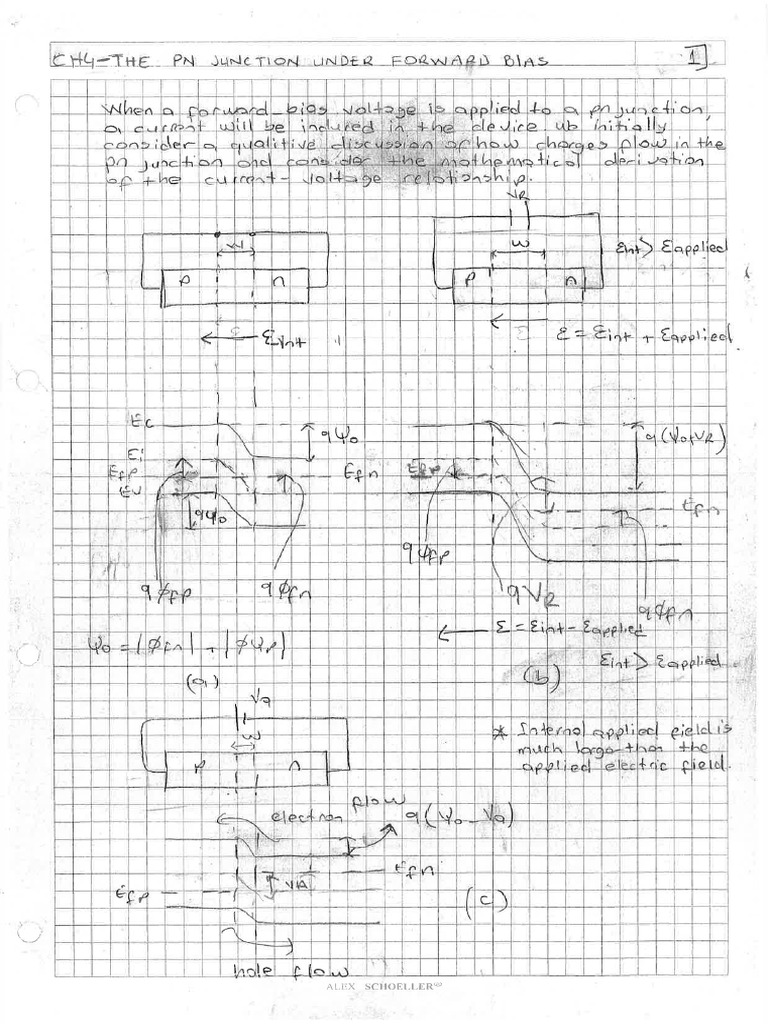 CH4-THE PN JUNCTION UNDER FORWARD BIAS
1
When a forward-bias voltage is applied to a pn junction,
a current will be induced in the device. We initially
consider a qualitive discussion of how charges flow in the
pn junction and consider the mathematical derivation
of the current-voltage relationship.
VR
W
W
Eint > Eapplied
P
n
P
n
Ɛ
Ɛint
Ɛ
Ɛ = Ɛint + Ɛapplied
Ec
qψ0
q(ψ0+VR)
Ei
Efp
Efn
Efp
Ev
Efn
qψ0
qφfp
qφfn
qφfp
qVR
qφfn
Ɛ = Ɛint - Ɛapplied
ψ0 = |φfn| + |φψp|
Ɛint > Ɛapplied
(a)
(b)
Va
W
* Internal applied field is
much large than the
applied electric field.
P
n
electron flow
q(ψ0 - Va)
Efn
VA
Efp
(c)
hole flow
ALEX SCHOELLER